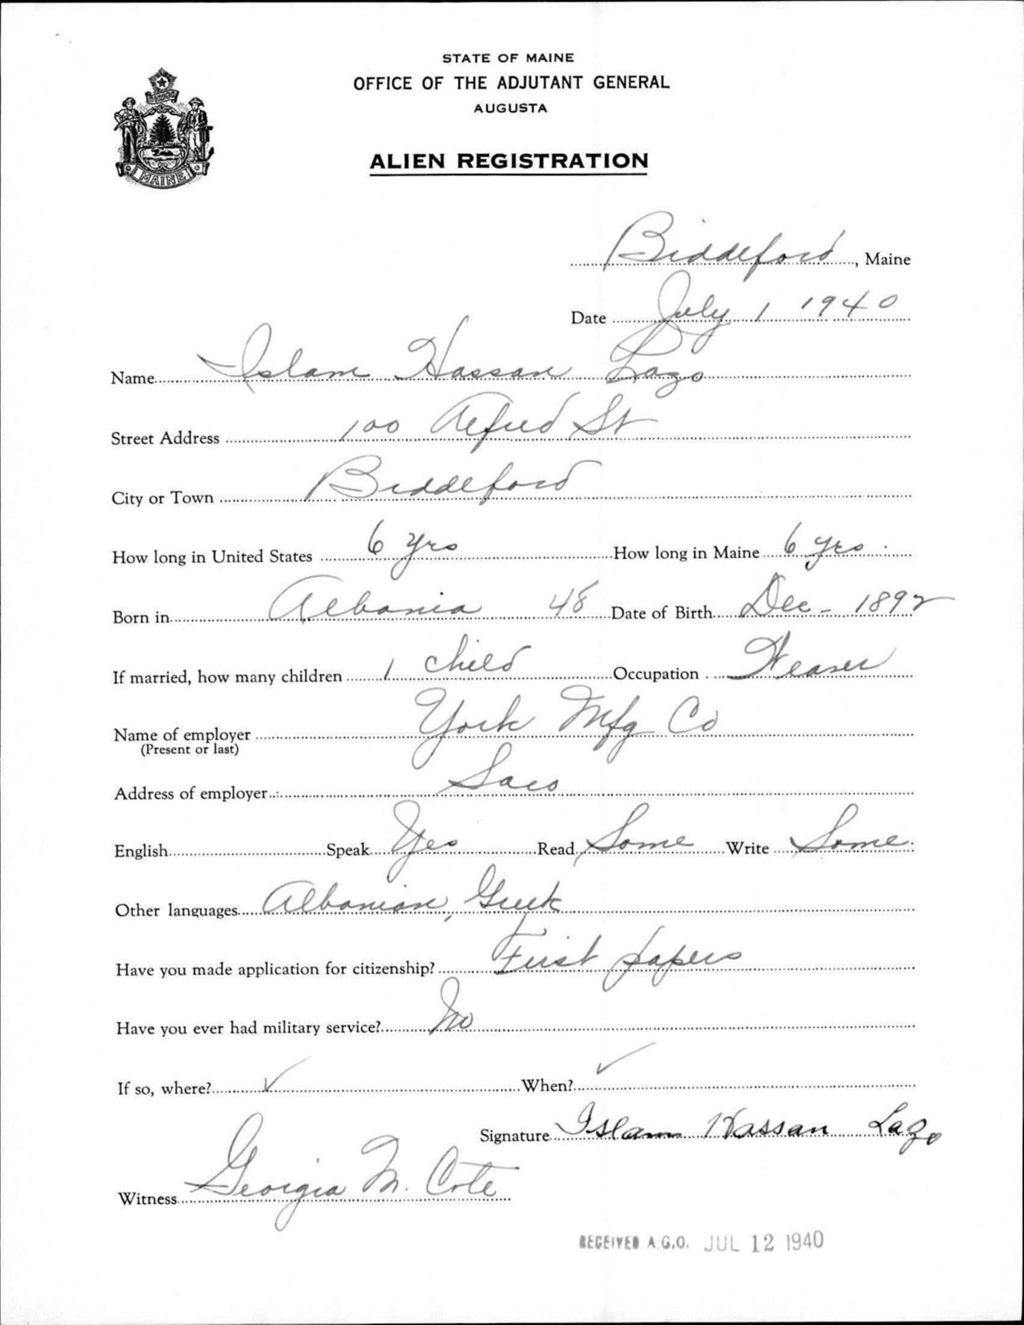 STATE OF MAINE
OFFICE OF THE ADJUTANT GENERAL
AUGUSTA
ALIEN REGISTRATION
MAINE
Biddeford, Maine
Date July 1 1940
Name Islam Hassan Lazo
Street Address 100 Alfred St
City or Town Biddeford
How long in United States 6 yrs How long in Maine 6 yrs.
Born in Albania 48 Date of Birth Dec - 1892
If married, how many children 1 child Occupation Weaver
Name of employer York Mfg Co
(Present or last)
Address of employer Saco
English Speak Yes Read Some Write Some
Other languages Albanian, Greek
Have you made application for citizenship? First papers
Have you ever had military service? No
If so, where? ✓ When? ✓
Signature Islam Hassan Lazo
Witness Georgia M. Cote
RECEIVED A.G.O. JUL 12 1940